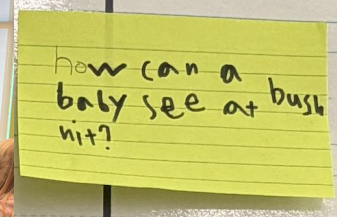 how can a
baby see at bush
nit?